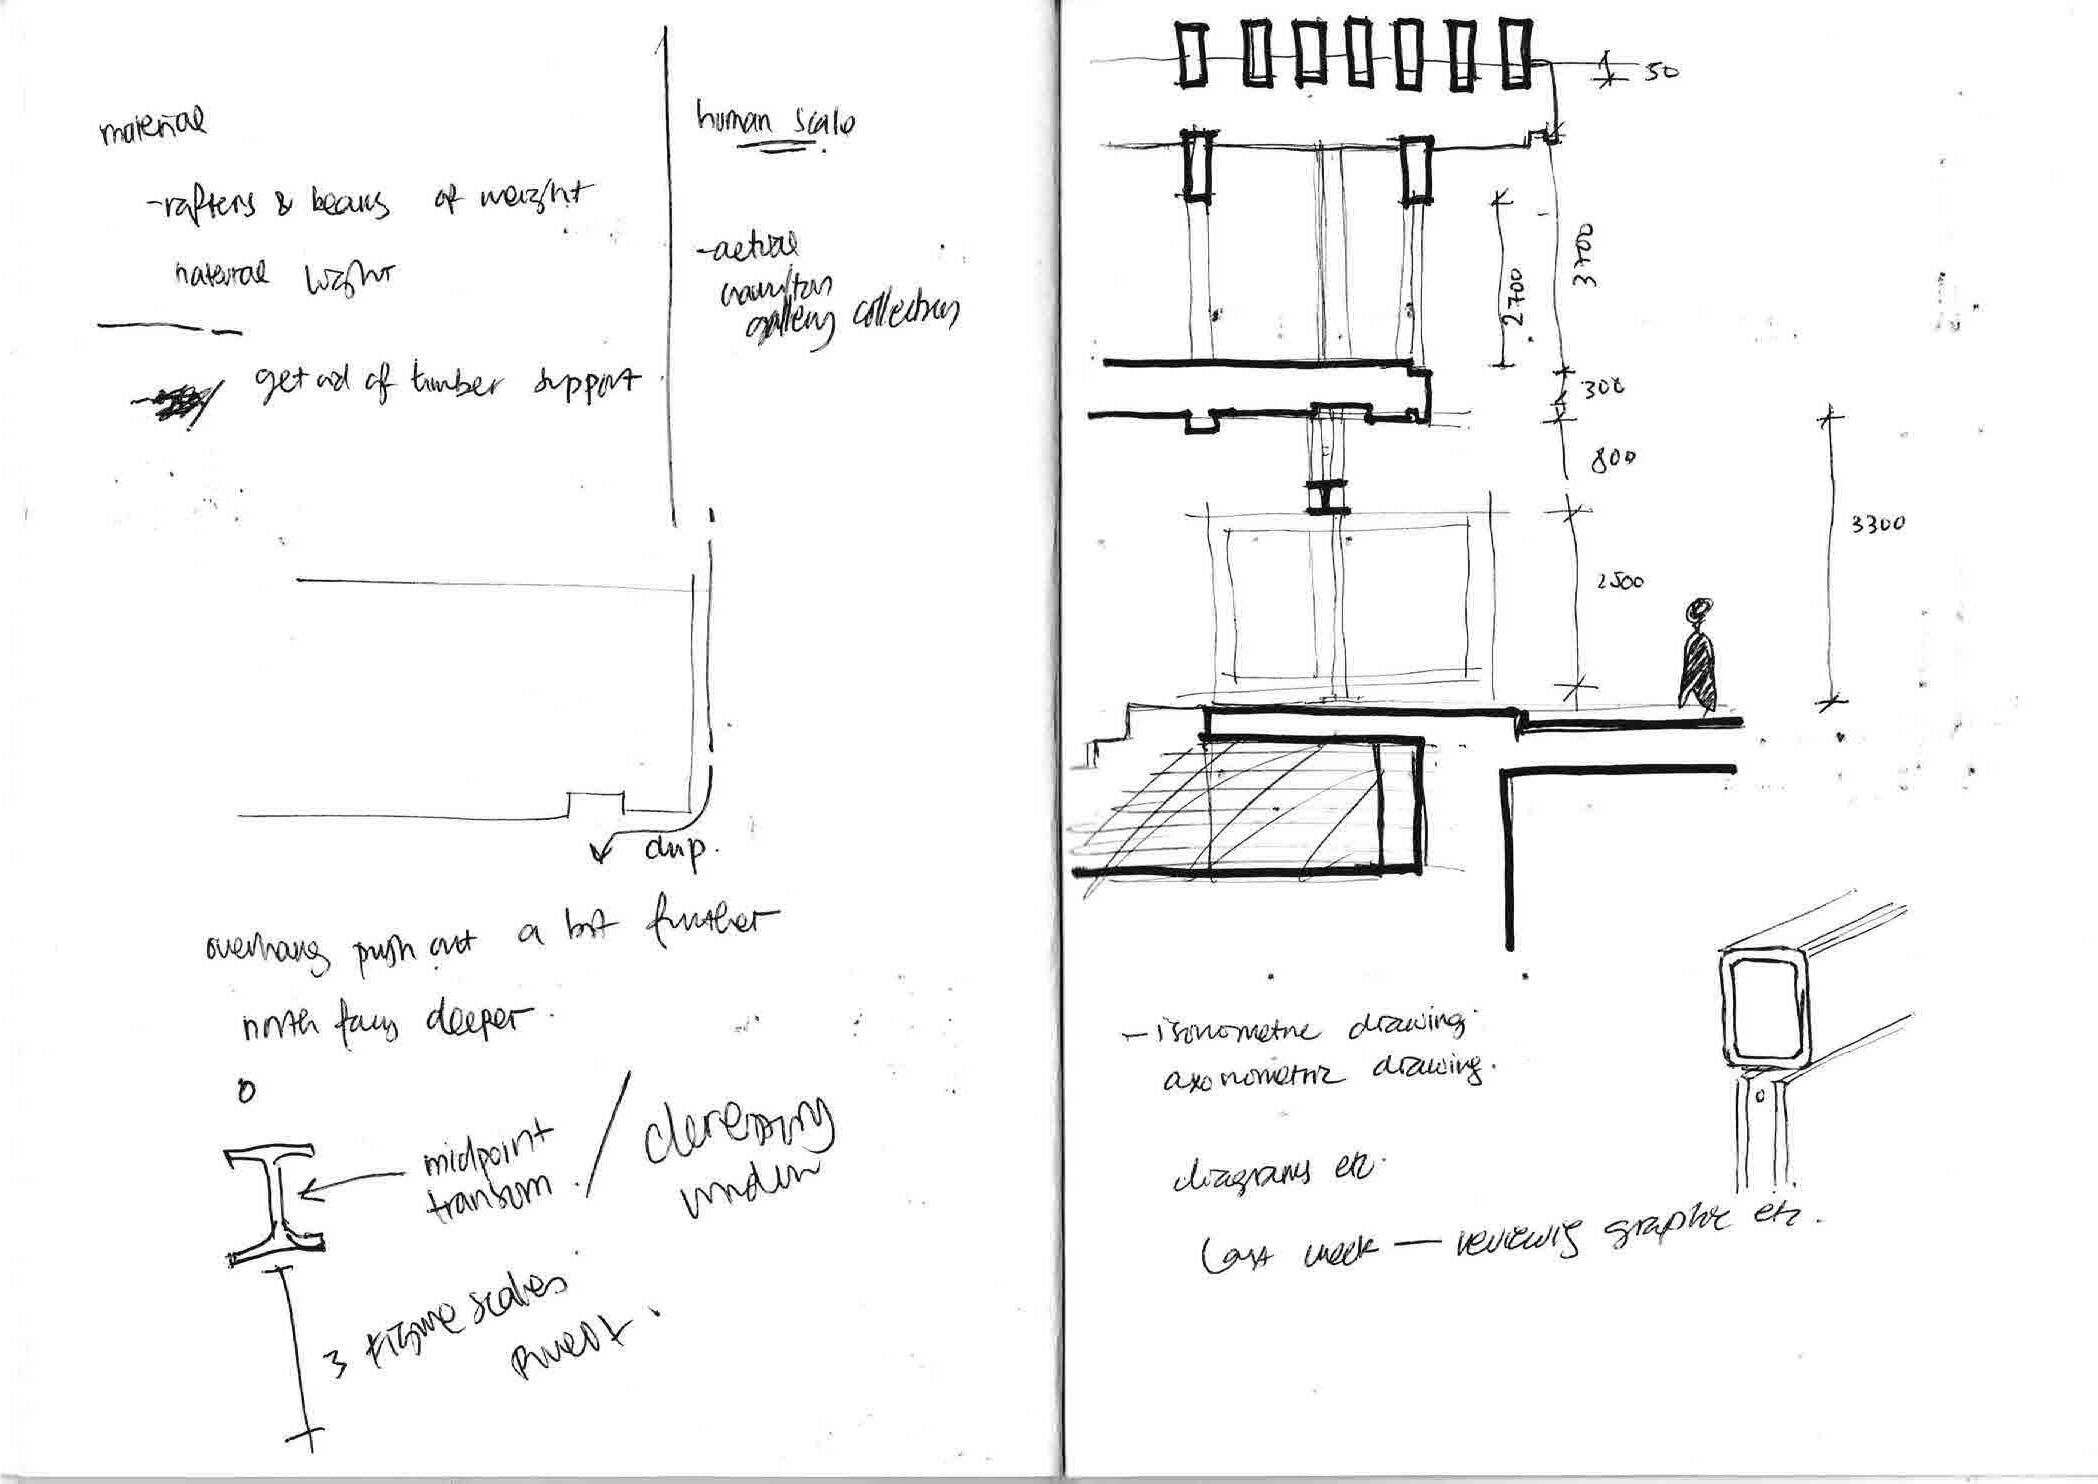 material
-rafters & beams of weight
natural light
get rid of timber support
human scale
-actual
gallery collection
drip.
overhang push out a bit further
north facing deeper.
midpoint
transom.
/
under
3 figure scales
50
3700
2700
300
800
3300
2500
- isonometric drawing.
axonometric drawing.
diagrams etc.
Last week — reviewing graphic etc.